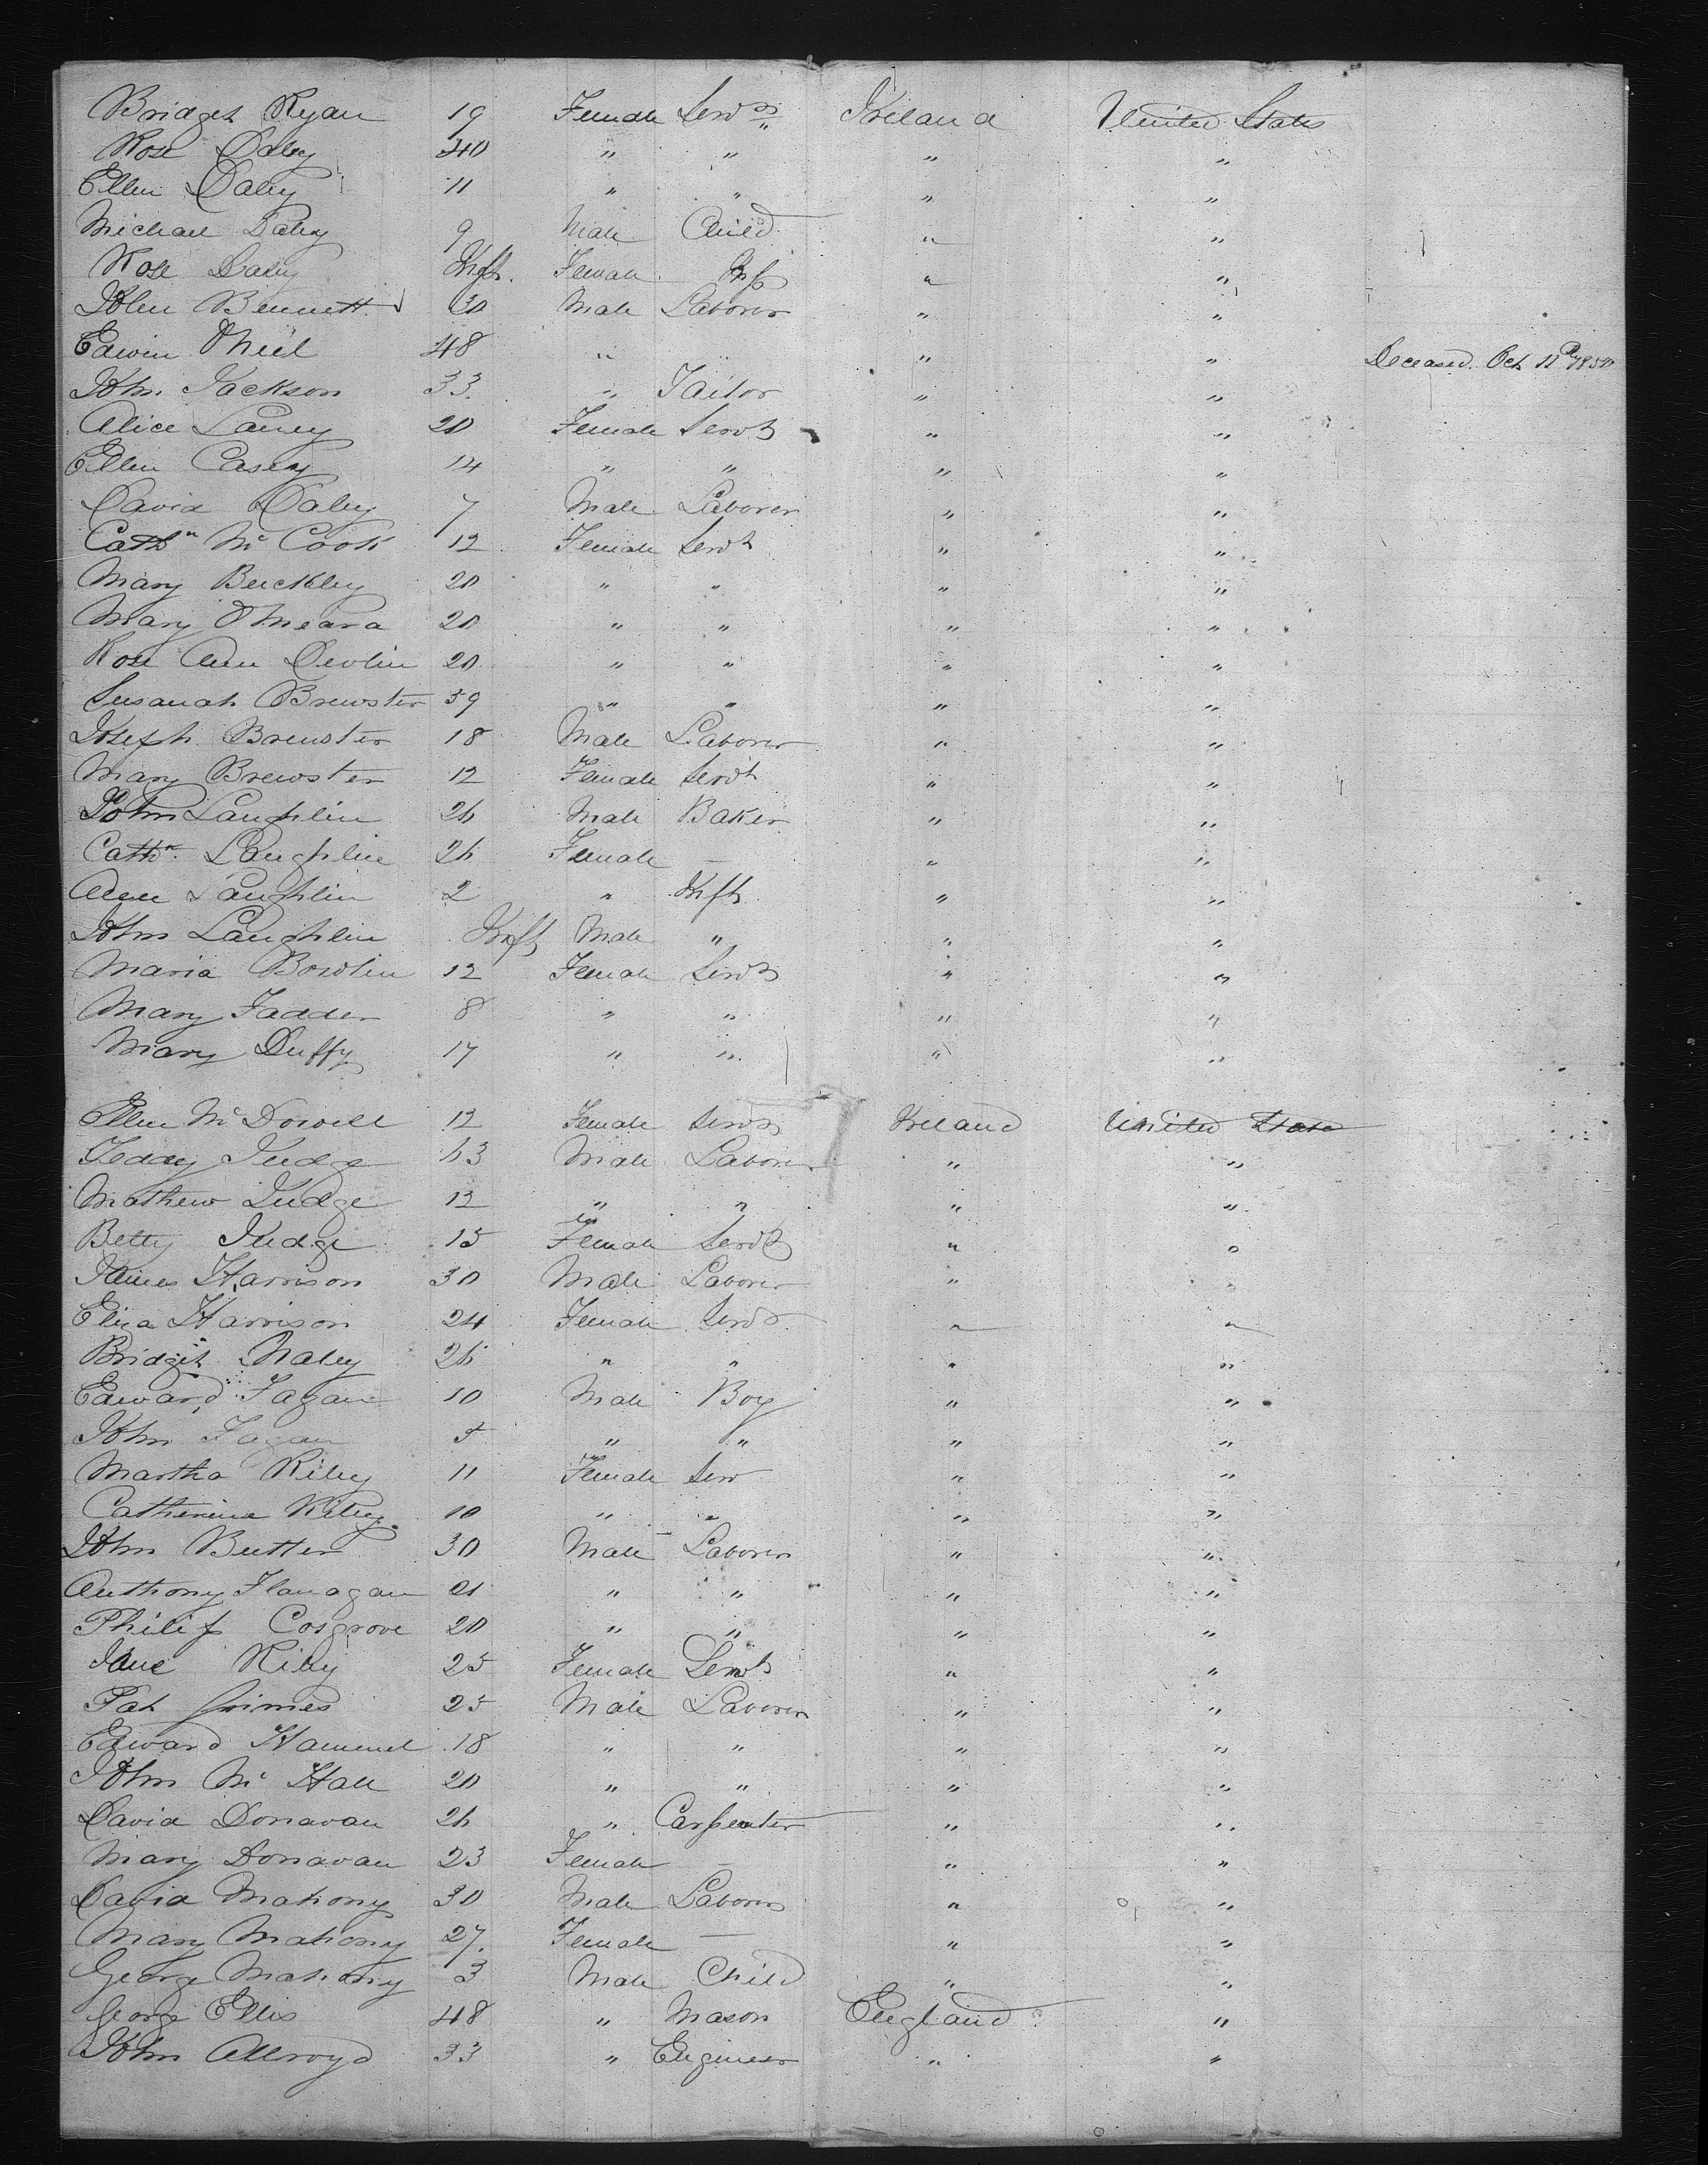 Bridget Ryan 19 Female Servt Ireland United States
Rose Daley 40 " " " "
Ellen Daley 11 " " " "
Michael Daley 9 Male Child " "
Rose Daley Inft. Female Inft " "
John Bennett 30 Male Laborer " "
Edwin O'Neil 48 " " " " Deceased Oct 11th 1850
John Jackson 33 " Tailor " "
Alice Laney 20 Female Servt " "
Ellen Casey 14 " " " "
David Daley 7 Male Laborer " "
Cathn McCook 12 Female Servt " "
Mary Buckley 20 " " " "
Mary O'Meara 20 " " " "
Rose Ann Devlin 20 " " " "
Susanah Brewster 39 " " " "
Joseph Brewster 18 Male Laborer " "
Mary Brewster 12 Female Servt " "
John Laughlin 26 Male Baker " "
Cathn. Laughlin 26 Female — " "
Ann Laughlin 2 " Inft " "
John Laughlin Inft Male " " "
Maria Bowlin 12 Female Servt " "
Mary Fadden 8 " " " "
Mary Duffy 17 " " " "
Ellen McDowell 12 Female Servt Ireland United States
Teddy Judge 63 Male Laborer " "
Mathew Judge 12 " " " "
Betty Judge 15 Female Servt " "
James Harrison 30 Male Laborer " "
Eliza Harrison 24 Female Servt " "
Bridget Maley 26 " " " "
Edward Fagan 10 Male Boy " "
John Fagan 5 " " " "
Martha Riley 11 Female Serv " "
Catherine Riley 10 " " " "
John Butler 30 Male Laborer " "
Anthony Flanagan 21 " " " "
Philip Cosgrove 20 " " " "
Jane Riley 25 Female Servt " "
Pat Grimes 25 Male Laborer " "
Edward Hammel 18 " " " "
John McHall 20 " " " "
David Donavan 26 " Carpenter " "
Mary Donavan 23 Female — " "
David Mahony 30 Male Laborer " "
Mary Mahony 27. Female — " "
George Mahony 3 Male Child " "
George Ellis 48 " Mason England "
John Allroyd 33 " Engineer " "